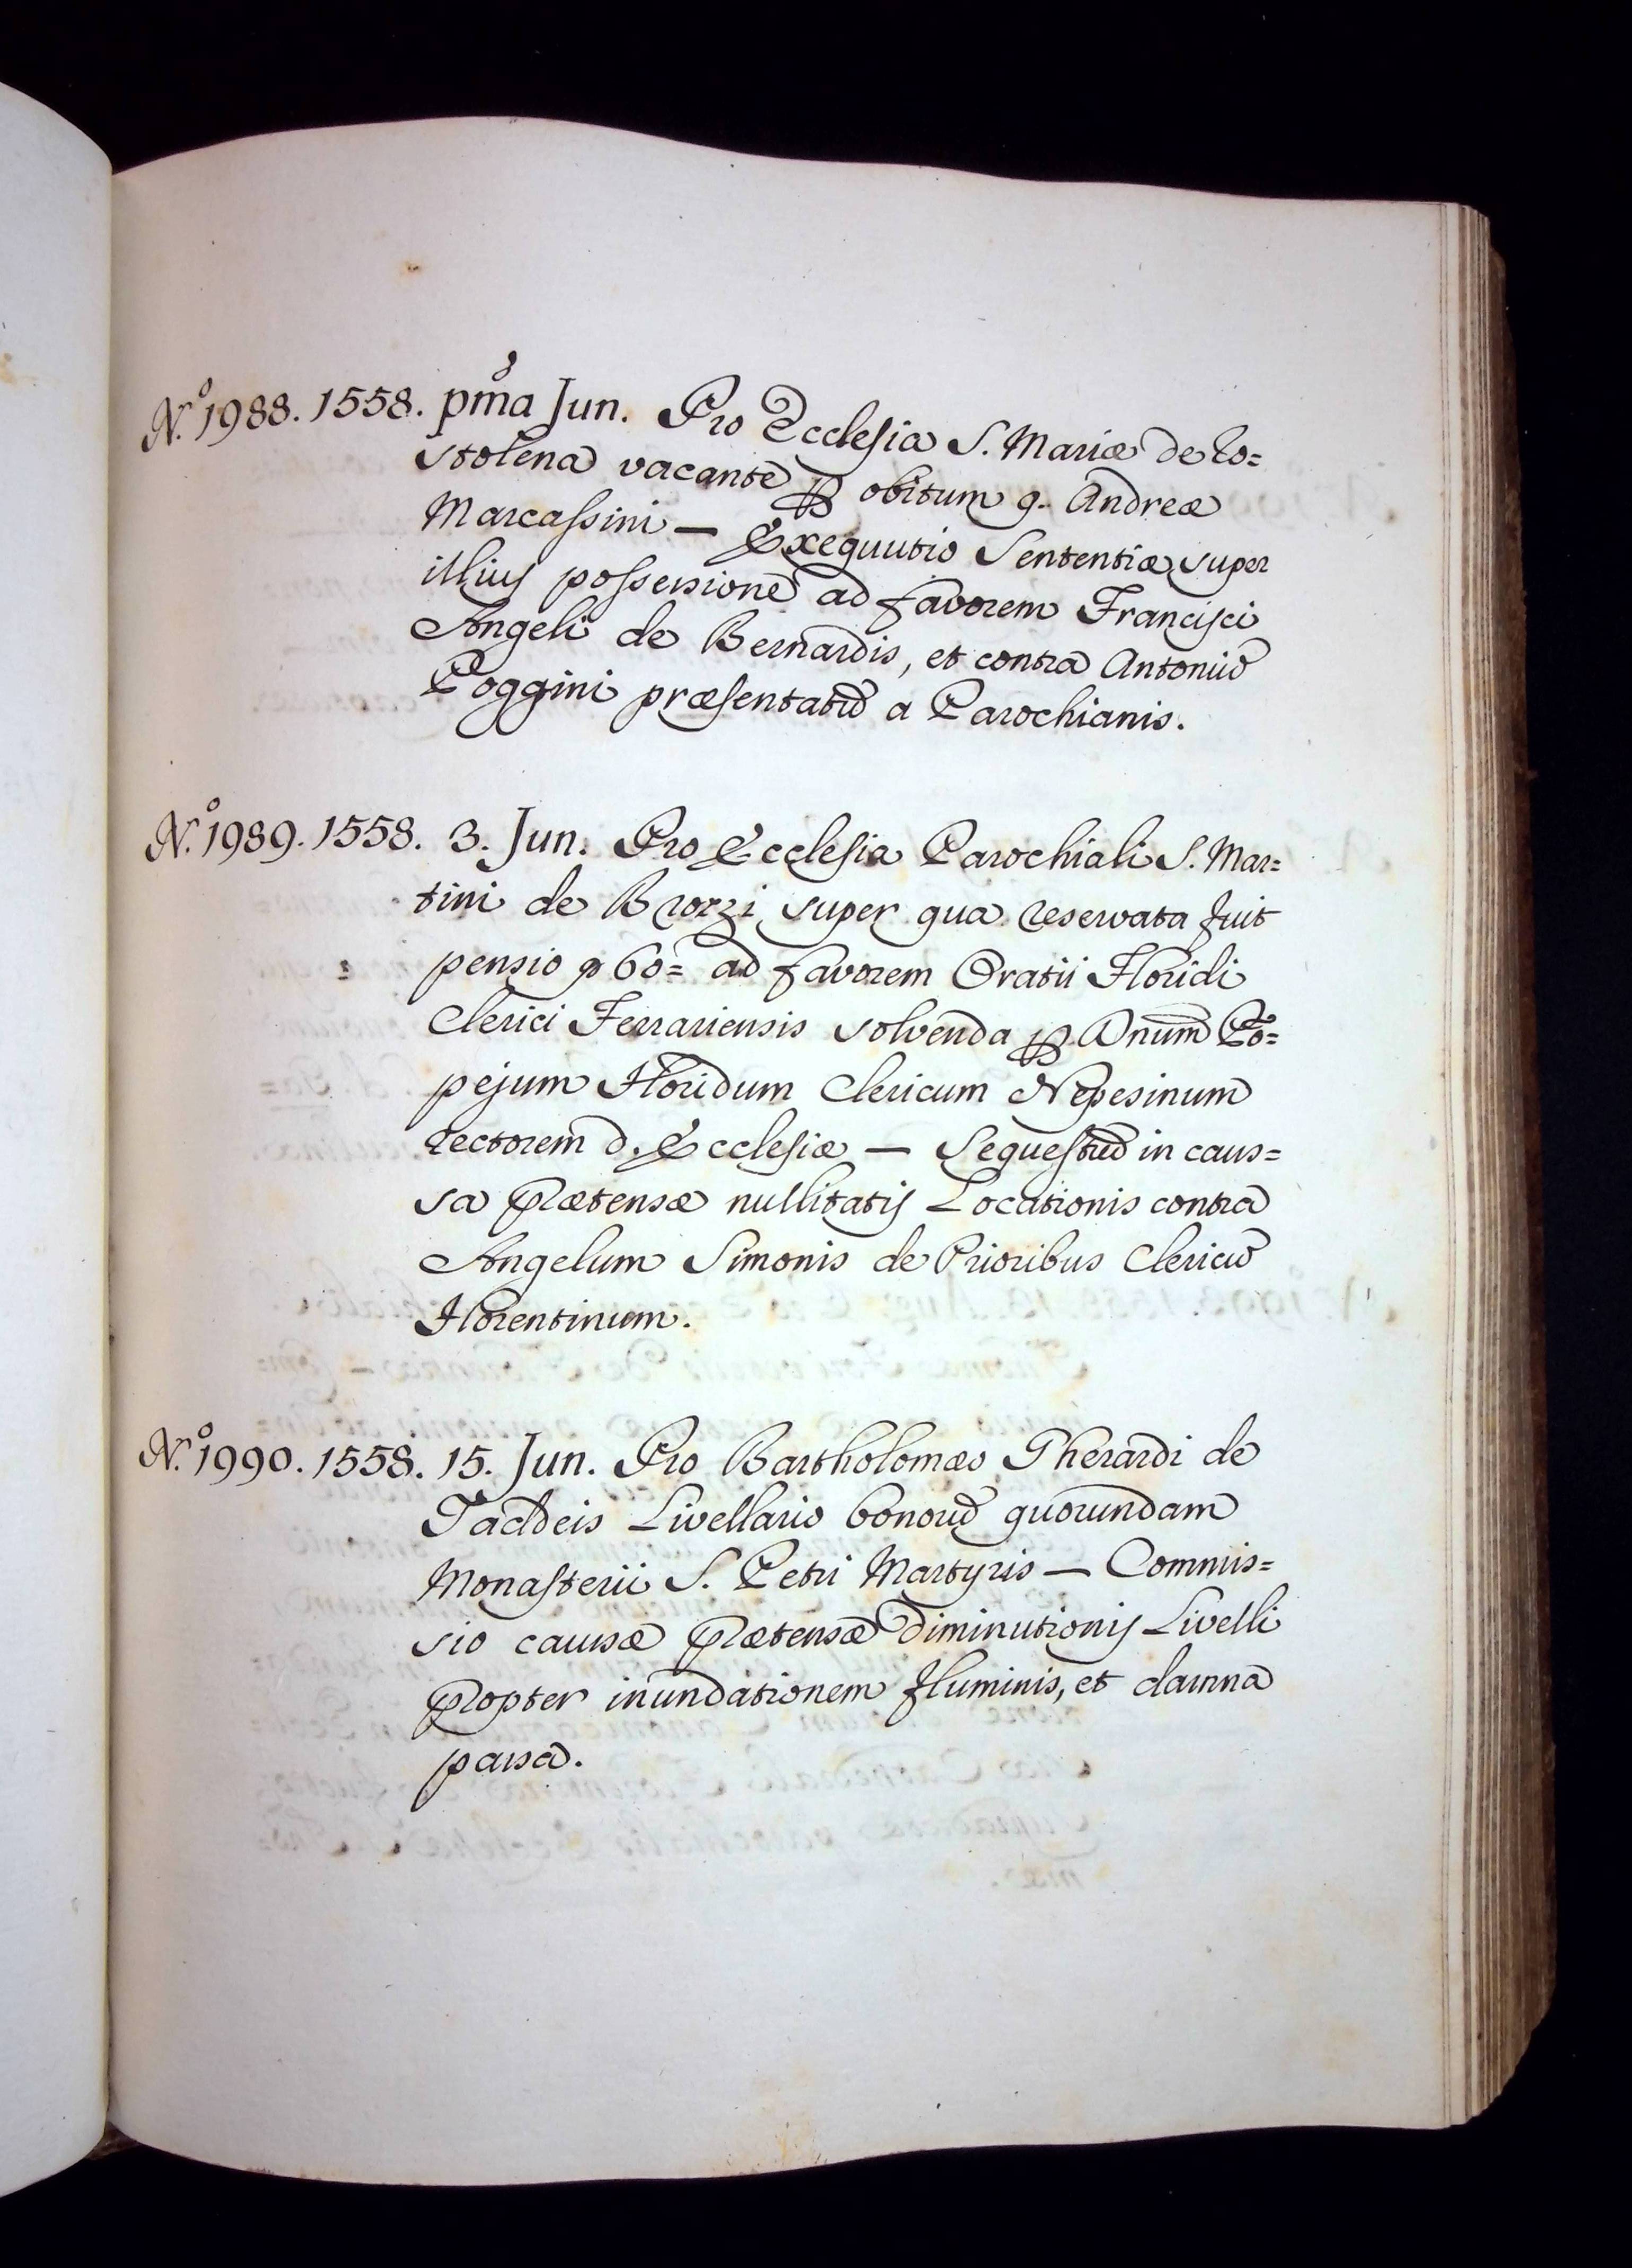 N.º 1988. 1558. pm̃a Jun. Pro Ecclesia S. Mariæ de Ro=
stolena vacante ꝑ obitum q. Andreæ
Marcassini — Exequutio Sententiæ super
illius possessione ad favorem Francisci
Angeli de Bernardis, et contra Antoniũ
Poggini præsentatũ a Parochianis.
N.º 1989. 1558. 3. Jun. Pro Ecclesia Parochiali S. Mar=
tini de Brozzi super qua reservata fuit
pensio 60= ad favorem Oratii Floridi
Clerici Ferrariensis solvenda ꝑ Anum Põ=
pejum Floridum Clericum Nepesinum
rectorem d. Ecclesiæ — Sequestrũ in caus=
sa prætensæ nullitatis Locationis contra
Angelum Simonis de Prioribus Clericũ
Florentinum.
N.º 1990. 1558. 15. Jun. Pro Bartholomæo Gherardi de
Taddeis Livellario bonorũ quorundam
Monasterii S. Petri Martyris — Commis=
sio causæ prætensæ diminutionis Livelli
propter inundationem fluminis, et damna
passa.